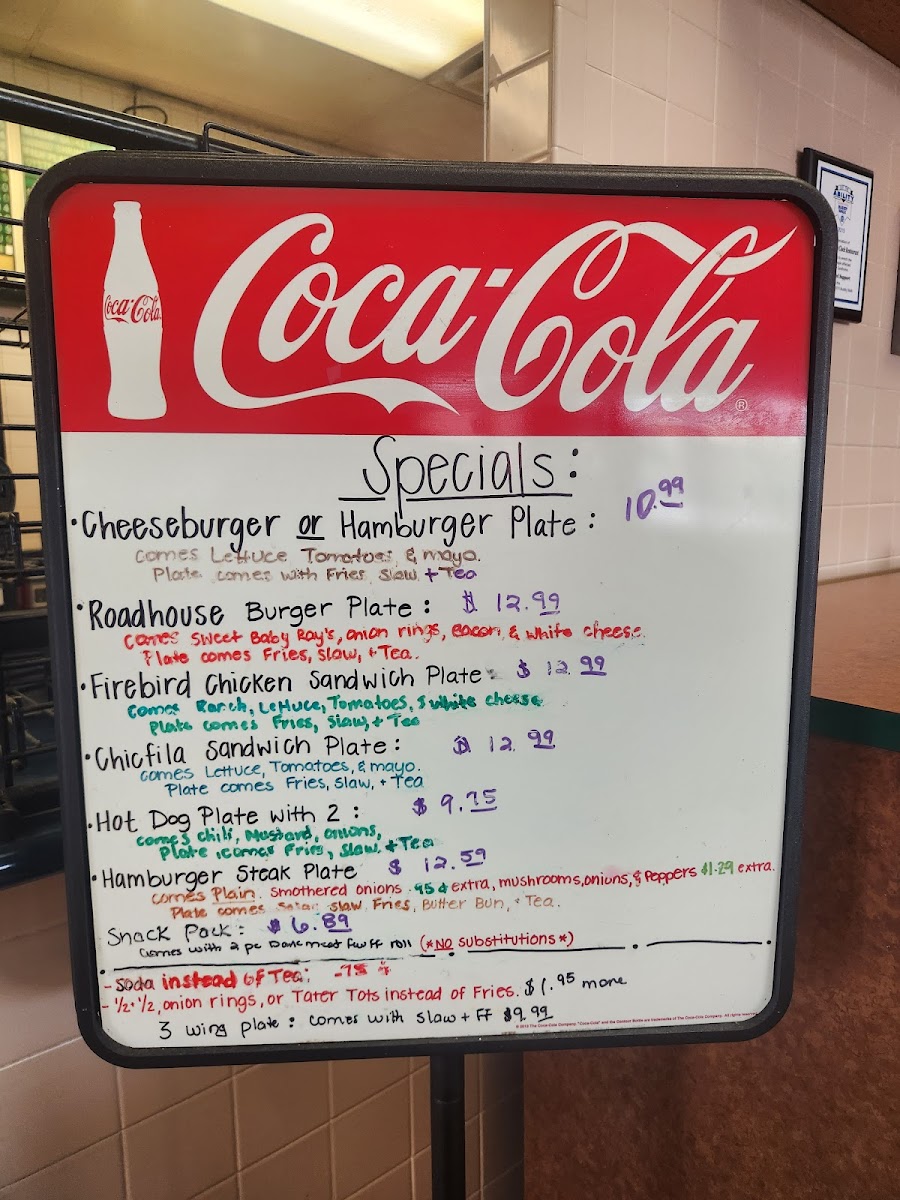 Coca-Cola
Coca-Cola®
Specials:
• Cheeseburger or Hamburger Plate: 10.99
comes Lettuce Tomatoes & mayo.
Plate comes with Fries, Slaw, + Tea
• Roadhouse Burger Plate: $ 12.99
comes Sweet Baby Ray's, onion rings, Bacon, & white cheese.
Plate comes Fries, Slaw, + Tea.
• Firebird Chicken Sandwich Plate: $ 12.99
comes Ranch, Lettuce, Tomatoes, & white cheese
Plate comes Fries, Slaw, + Tea
• Chicfila Sandwich Plate: $ 12.99
comes Lettuce, Tomatoes, & mayo.
Plate comes Fries, Slaw, + Tea
• Hot Dog Plate with 2: $ 9.75
comes chili, Mustard, onions,
Plate comes Fries, Slaw, + Tea
• Hamburger Steak Plate $ 12.59
comes Plain. Smothered onions .95¢ extra, mushrooms, onions, & Peppers $1.29 extra.
Plate comes Slaw, Fries, Butter Bun, + Tea.
Snack Pack: $ 6.89
comes with 2 pc Dark meat FF roll (*NO substitutions*)
- soda instead of Tea: .75 ¢
- 1/2 + 1/2, onion rings, or Tater Tots instead of Fries. $1.95 more
3 wing plate: comes with slaw + FF $9.99
ABILITY